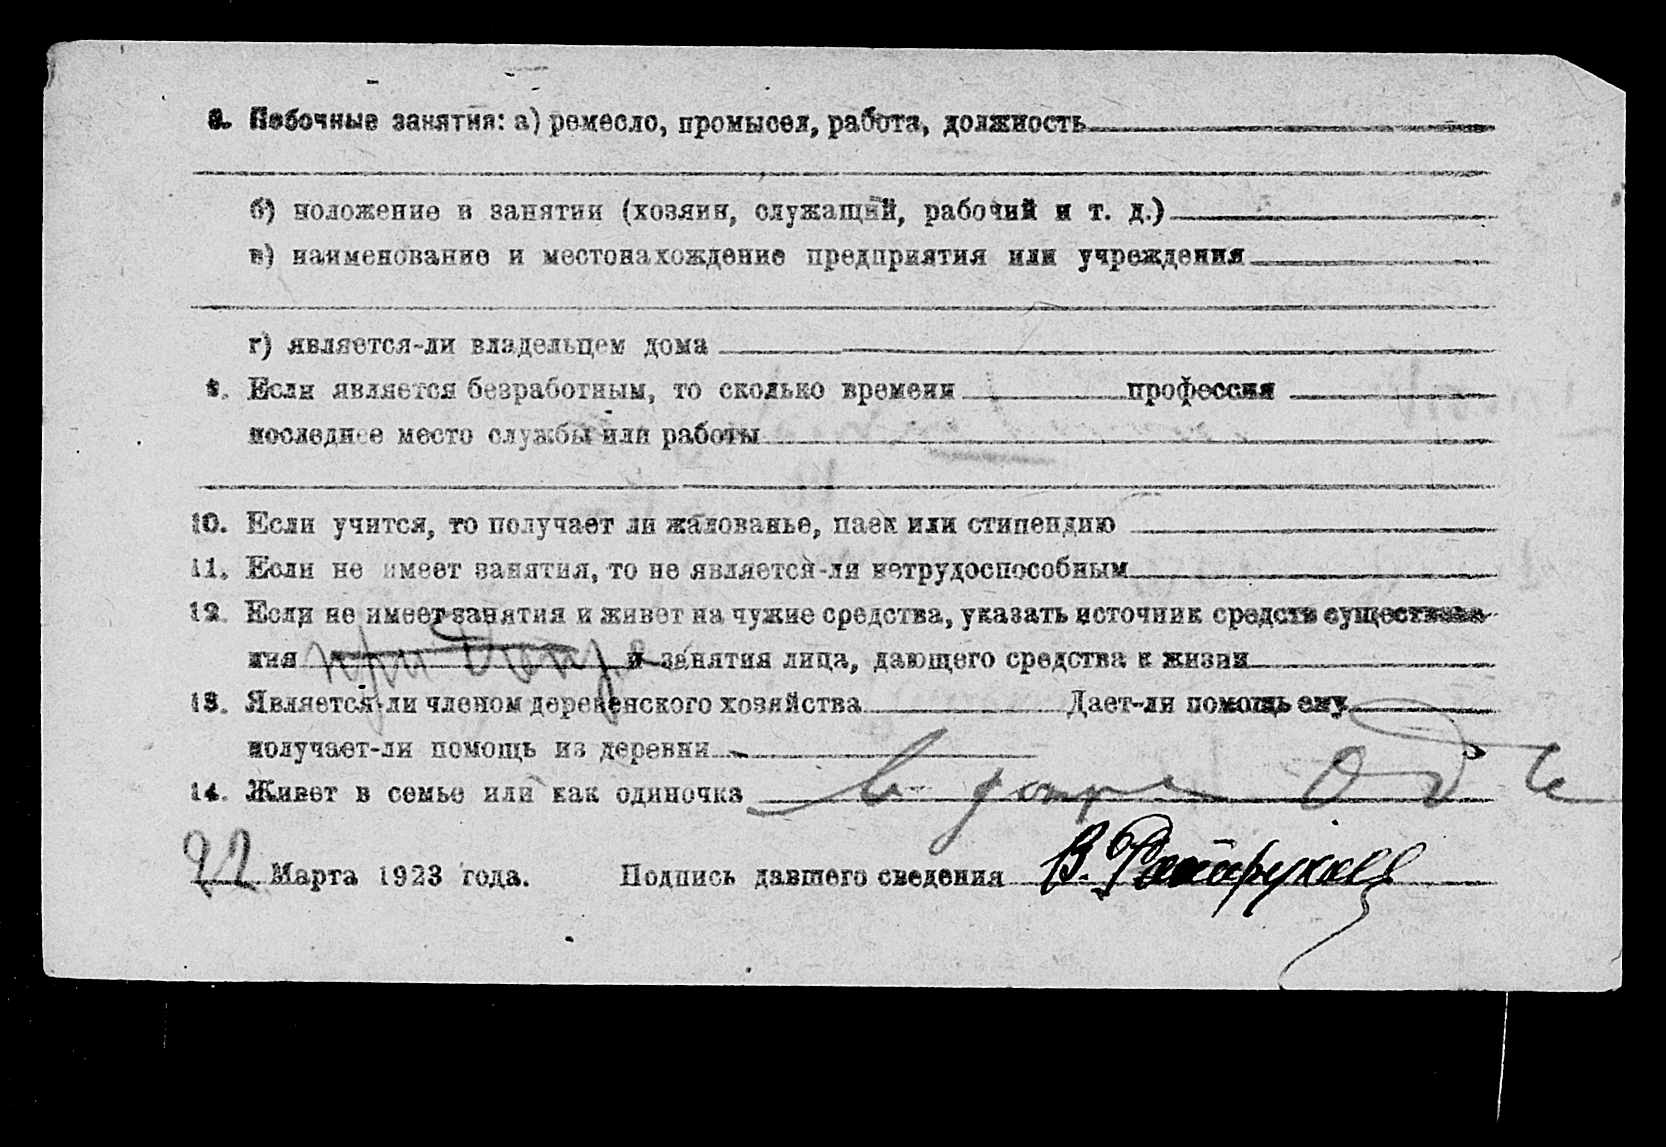 8. Побочные занятия: а) ремесло, промысел, работа, должность
б) положение в занятии (хозяин, служащий, рабочий и т. д.)
в) наименование и местонахождение предприятия или учреждения
г) является-ли владельцем дома
9. Если является безработным, то сколько времени профессия
последнее место службы или работы
10. Если учится, то получает ли жалованье, паек или стипендию
11. Если не имеет занятия, то не является-ли нетрудоспособным
12. Если не имеет занятия и живет на чужие средства, указать источник средств существова-
ния при Допре и занятия лица, дающего средства к жизни
13. Является-ли членом деревенского хозяйства Дает-ли помощь ему
получает-ли помощь из деревни
14. Живет в семье или как одиночка в допре
22 Марта 1923 года. Подпись давшего сведения В.